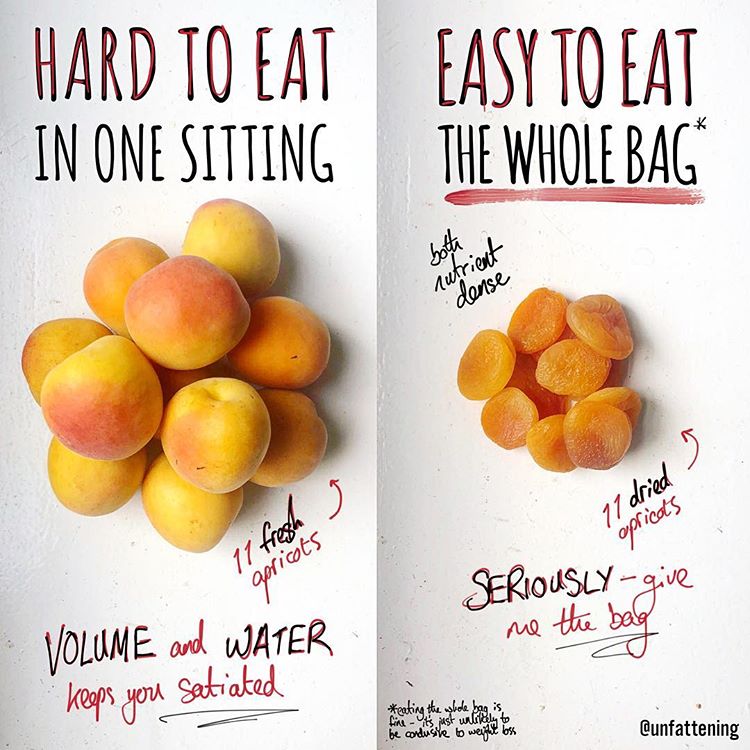 HARD TO EAT
IN ONE SITTING
11 fresh
apricots
VOLUME and WATER
keeps you satiated
EASY TO EAT
THE WHOLE BAG*
both
nutrient
dense
11 dried
apricots
SERIOUSLY - give
me the bag
*eating the whole bag is
fine - it's just unlikely to
be conducive to weight loss
@unfattening